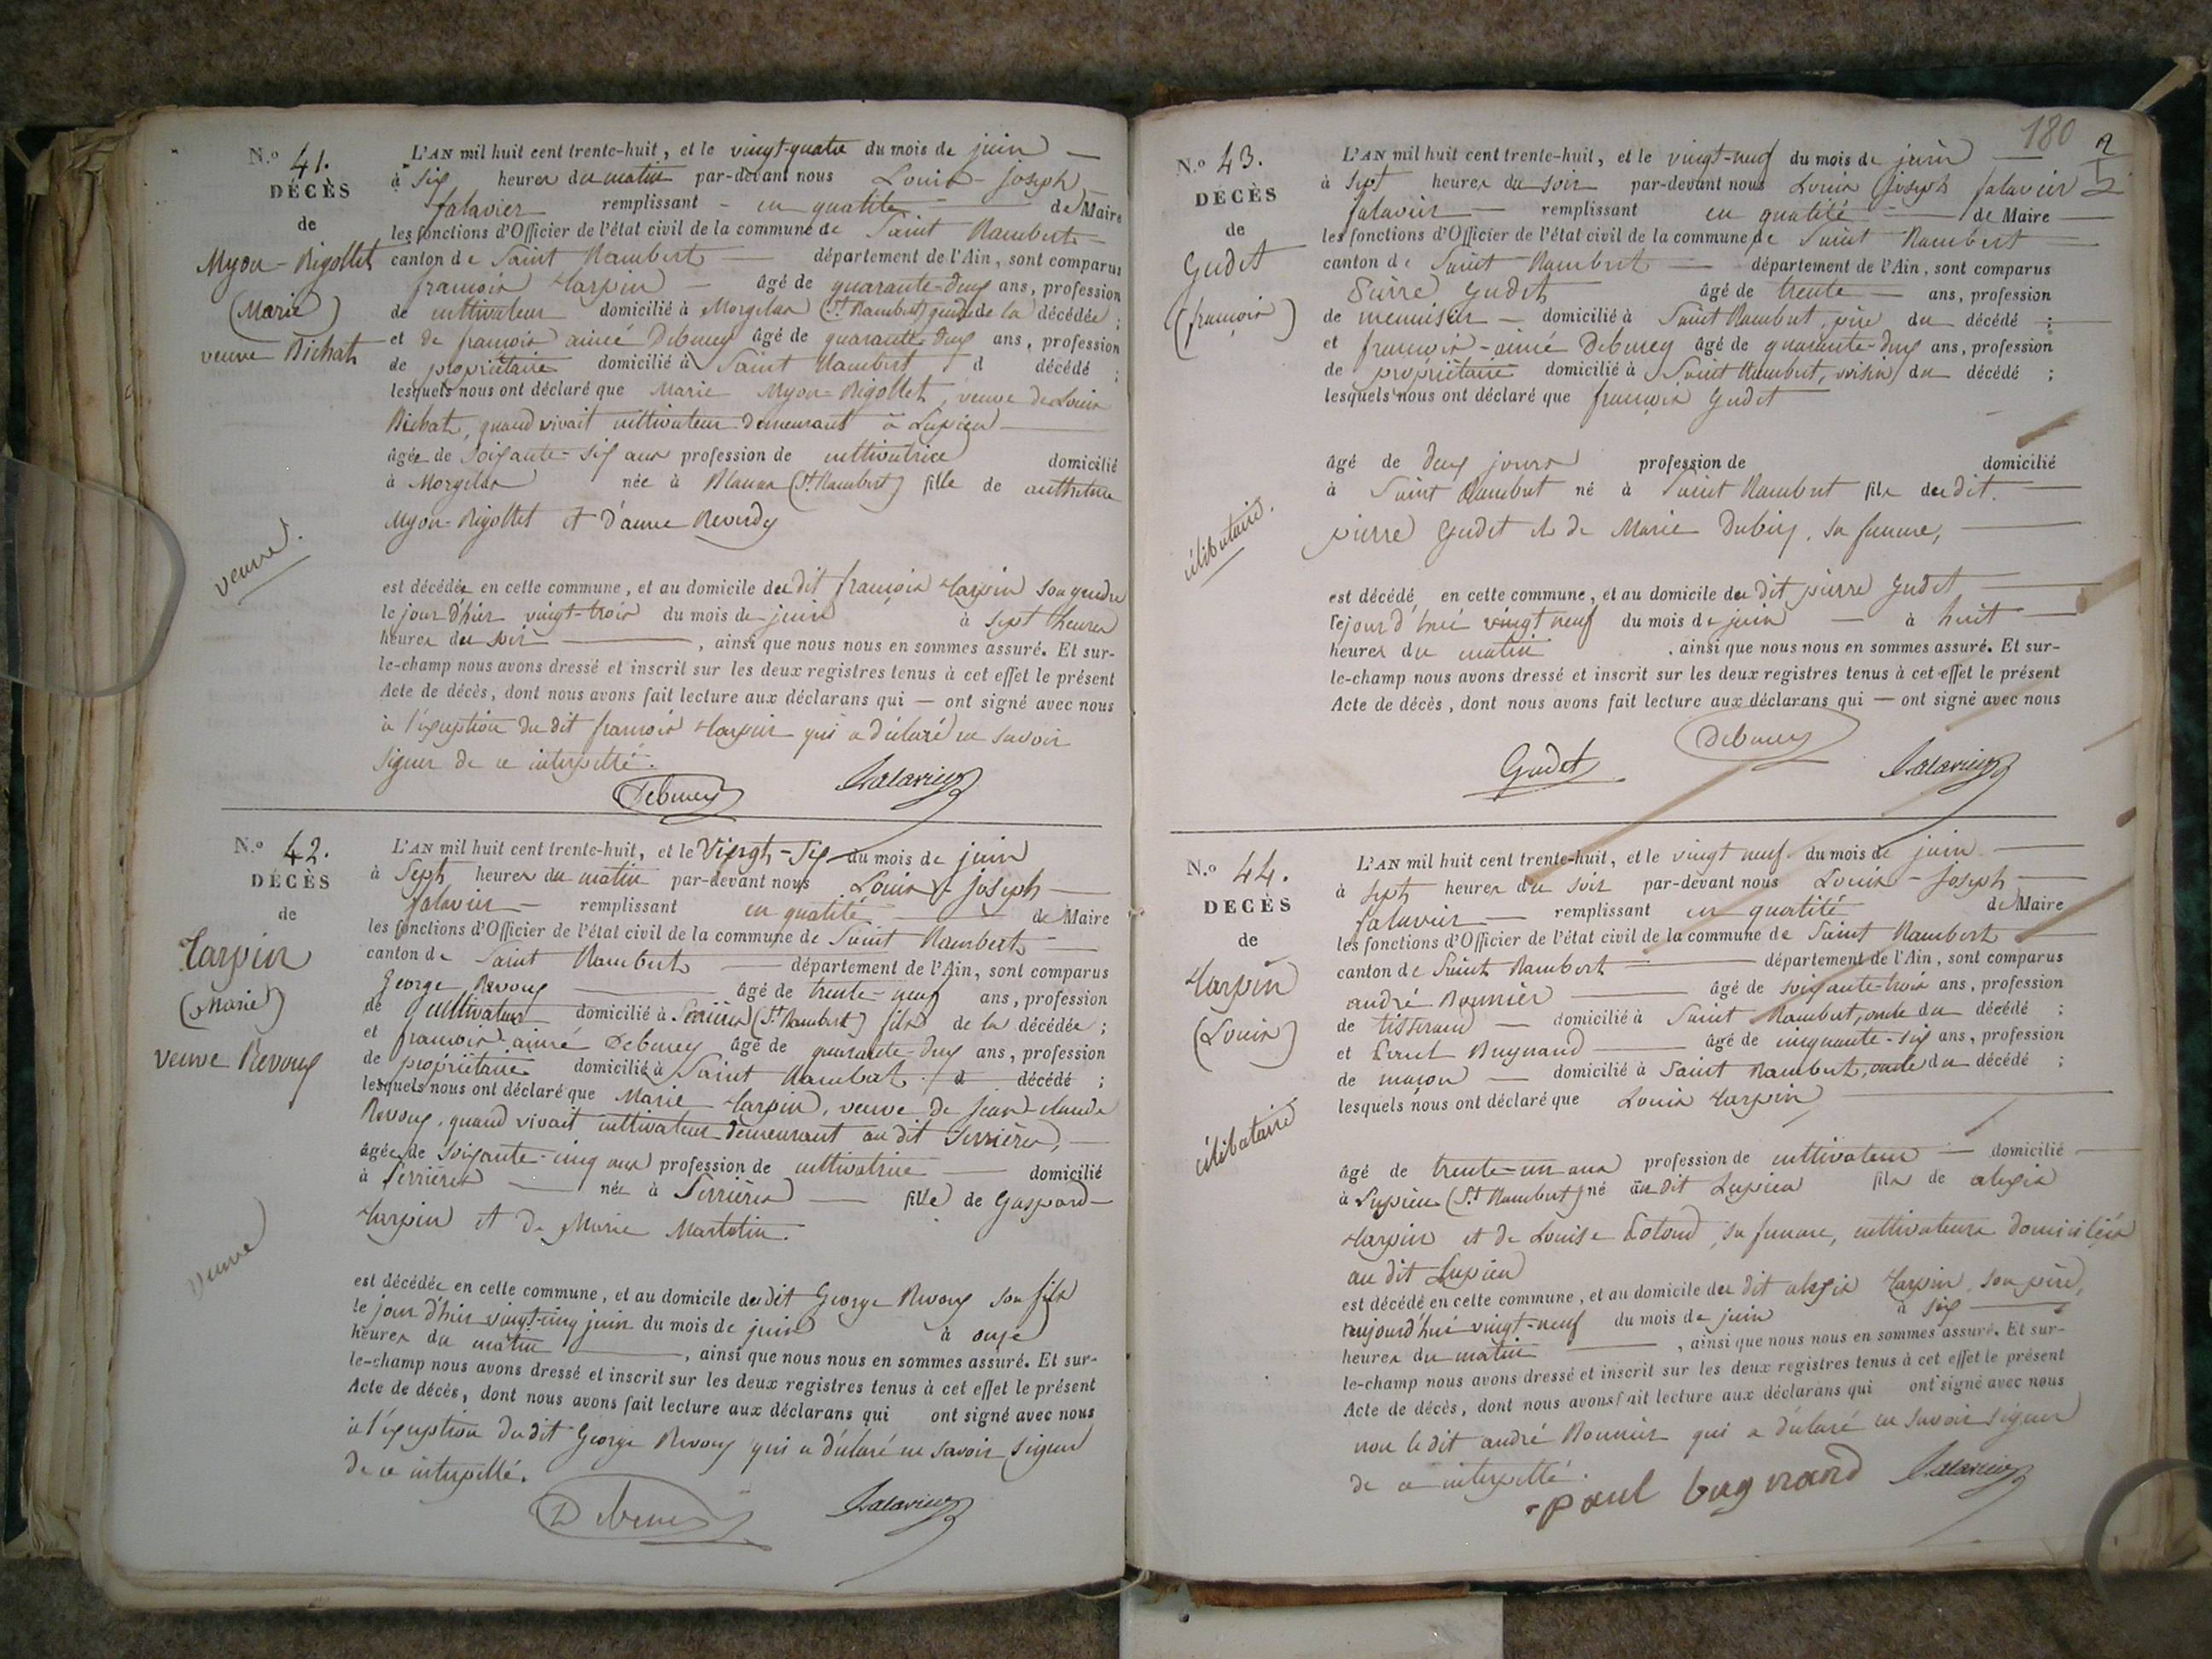 N.o 41.
DÉCÈS
de
Myon-Rigollet
(Marie)
veuve Bichat
veuve.
L'AN mil huit cent trente-huit, et le vingt-quatre du mois de juin
à six heures du matin par-devant nous Louis-joseph
falavier remplissant en qualité de Maire
les fonctions d'Officier de l'état civil de la commune de Saint Rambert
canton de Saint Rambert département de l'Ain, sont comparus
françois Tarpin âgé de quarante-deux ans, profession
de cultivateur domicilié à Morgelas (St. Rambert) gendre de la décédée ;
et de françois aimé Debeney âgé de quarante-deux ans, profession
de propriétaire domicilié à Saint Rambert d décédé ;
lesquels nous ont déclaré que Marie Myon-Rigollet, veuve de Louis
Bichat, quand vivait cultivateur demeurant à Lupieu
âgée de soixante-six ans profession de cultivatrice domicilié
à Morgelas née à Blanas (St. Rambert) fille de
Myon-Rigollet et d'anne Reverdy
est décédée en cette commune, et au domicile du dit françois Tarpin son gendre
le jour d'hier vingt-trois du mois de juin à sept heures
heures du soir , ainsi que nous nous en sommes assuré. Et sur-
le-champ nous avons dressé et inscrit sur les deux registres tenus à cet effet le présent
Acte de décès, dont nous avons fait lecture aux déclarans qui — ont signé avec nous
à l'exception du dit françois Tarpin qui a déclaré ne savoir
signer de ce interpellé.
Debeney falavier
N.o 42.
DÉCÈS
de
Tarpin
(Marie)
veuve Revoux
veuve
L'AN mil huit cent trente-huit, et le Vingt-six du mois de juin
à Sept heures du matin par-devant nous Louis-joseph
falavier remplissant en qualité de Maire
les fonctions d'Officier de l'état civil de la commune de Saint Rambert
canton de Saint Rambert département de l'Ain, sont comparus
George Revoux âgé de trente-neuf ans, profession
de cultivateur domicilié à Serrières (St. Rambert) fils de la décédée ;
et françois aimé Debeney âgé de quarante-deux ans, profession
de propriétaire domicilié à Saint Rambert d décédé ;
lesquels nous ont déclaré que Marie Tarpin, veuve de jean-claude
Revoux, quand vivait cultivateur demeurant au dit Serrières,
âgée de soixante-cinq ans profession de cultivatrice domicilié
à Serrières née à Serrières fille de Gaspard
Tarpin et de Marie Martelin.
est décédée en cette commune, et au domicile du dit George Revoux son fils
le jour d'hier vingt-cinq juin du mois de juin à onze
heures du matin , ainsi que nous nous en sommes assuré. Et sur-
le-champ nous avons dressé et inscrit sur les deux registres tenus à cet effet le présent
Acte de décès, dont nous avons fait lecture aux déclarans qui ont signé avec nous
à l'exception du dit George Revoux qui a déclaré ne savoir signer
de ce interpellé.
Debeney falavier
180
N.o 43.
DÉCÈS
de
Gudet
(françois)
célibataire.
L'AN mil huit cent trente-huit, et le vingt-neuf du mois de juin
à sept heures du soir par-devant nous Louis joseph falavier
falavier remplissant en qualité de Maire
les fonctions d'Officier de l'état civil de la commune de Saint Rambert
canton de Saint Rambert département de l'Ain, sont comparus
Pierre Gudet âgé de trente ans, profession
de menuisier domicilié à Saint Rambert, père du décédé ;
et françois-aimé Debeney âgé de quarante-deux ans, profession
de propriétaire domicilié à Saint Rambert, voisin du décédé ;
lesquels nous ont déclaré que françois Gudet
âgé de deux jours profession de domicilié
à Saint Rambert né à Saint Rambert fils du dit.
pierre Gudet et de Marie Dubiez, sa femme,
est décédé en cette commune, et au domicile du dit pierre Gudet
le jour d'hui vingt neuf du mois de juin à huit
heures du matin , ainsi que nous nous en sommes assuré. Et sur-
le-champ nous avons dressé et inscrit sur les deux registres tenus à cet effet le présent
Acte de décès, dont nous avons fait lecture aux déclarans qui — ont signé avec nous
Gudet Debeney falavier
N.o 44.
DÉCÈS
de
Tarpin
(Louis)
célibataire
L'AN mil huit cent trente-huit, et le vingt neuf du mois de juin
à sept heures du soir par-devant nous Louis-joseph
falavier remplissant en qualité de Maire
les fonctions d'Officier de l'état civil de la commune de Saint Rambert
canton de Saint Rambert département de l'Ain, sont comparus
andré Bonnier âgé de soixante-trois ans, profession
de tisserand domicilié à Saint Rambert, oncle du décédé ;
et Paul Bugnand âgé de cinquante-six ans, profession
de maçon domicilié à Saint Rambert, oncle du décédé ;
lesquels nous ont déclaré que Louis Tarpin
âgé de trente-un ans profession de cultivateur domicilié
à Lupieu (St. Rambert) né au dit Lupieu fils de alexis
Tarpin et de Louise Lotoud, sa femme, cultivateurs domiciliés
au dit Lupieu
est décédé en cette commune, et au domicile du dit alexis Tarpin, son père,
aujourd'hui vingt-neuf du mois de juin à six
heures du matin , ainsi que nous nous en sommes assuré. Et sur-
le-champ nous avons dressé et inscrit sur les deux registres tenus à cet effet le présent
Acte de décès, dont nous avons fait lecture aux déclarans qui ont signé avec nous
non le dit andré Bonnier qui a déclaré ne savoir signer
de ce interpellé.
paul bugnand falavier